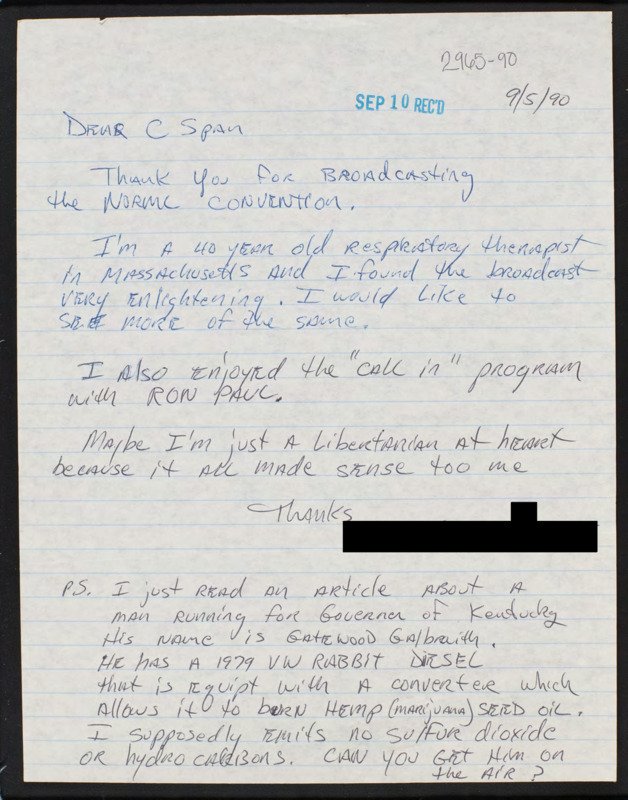 2965-90
SEP 10 REC'D
9/5/90
Dear C Span
Thank you for Broadcasting
the NORML CONVENTION.
I'm a 40 year old respiratory therapist
in Massachusetts and I found the broadcast
very enlightening. I would like to
see more of the same.
I also enjoyed the "call in" program
with RON PAUL.
Maybe I'm just a Libertarian at heart
because it all made sense too me
Thanks
P.S. I just read an article about a
man running for Governer of Kentucky
His name is GATEWOOD GAlbraith.
HE HAS A 1979 VW RABBIT DIESEL
that is equipt with a converter which
Allows it to burn HEMP (marijuana) SEED OIL.
I supposedly emits no sulfur dioxide
OR hydrocarbons. CAN you GET Him on
the AIR?